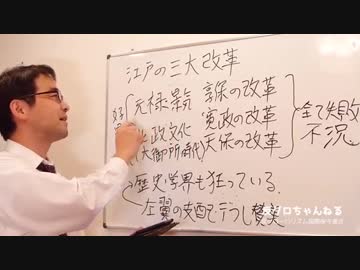 江戸の三大改革
元禄景気 享保の改革
政文化 寛政の改革
(大御所時代) 天保の改革
全て失敗
不況
歴史学界も狂っている.
左翼の支配でデフレ賛美
ちゃんねる